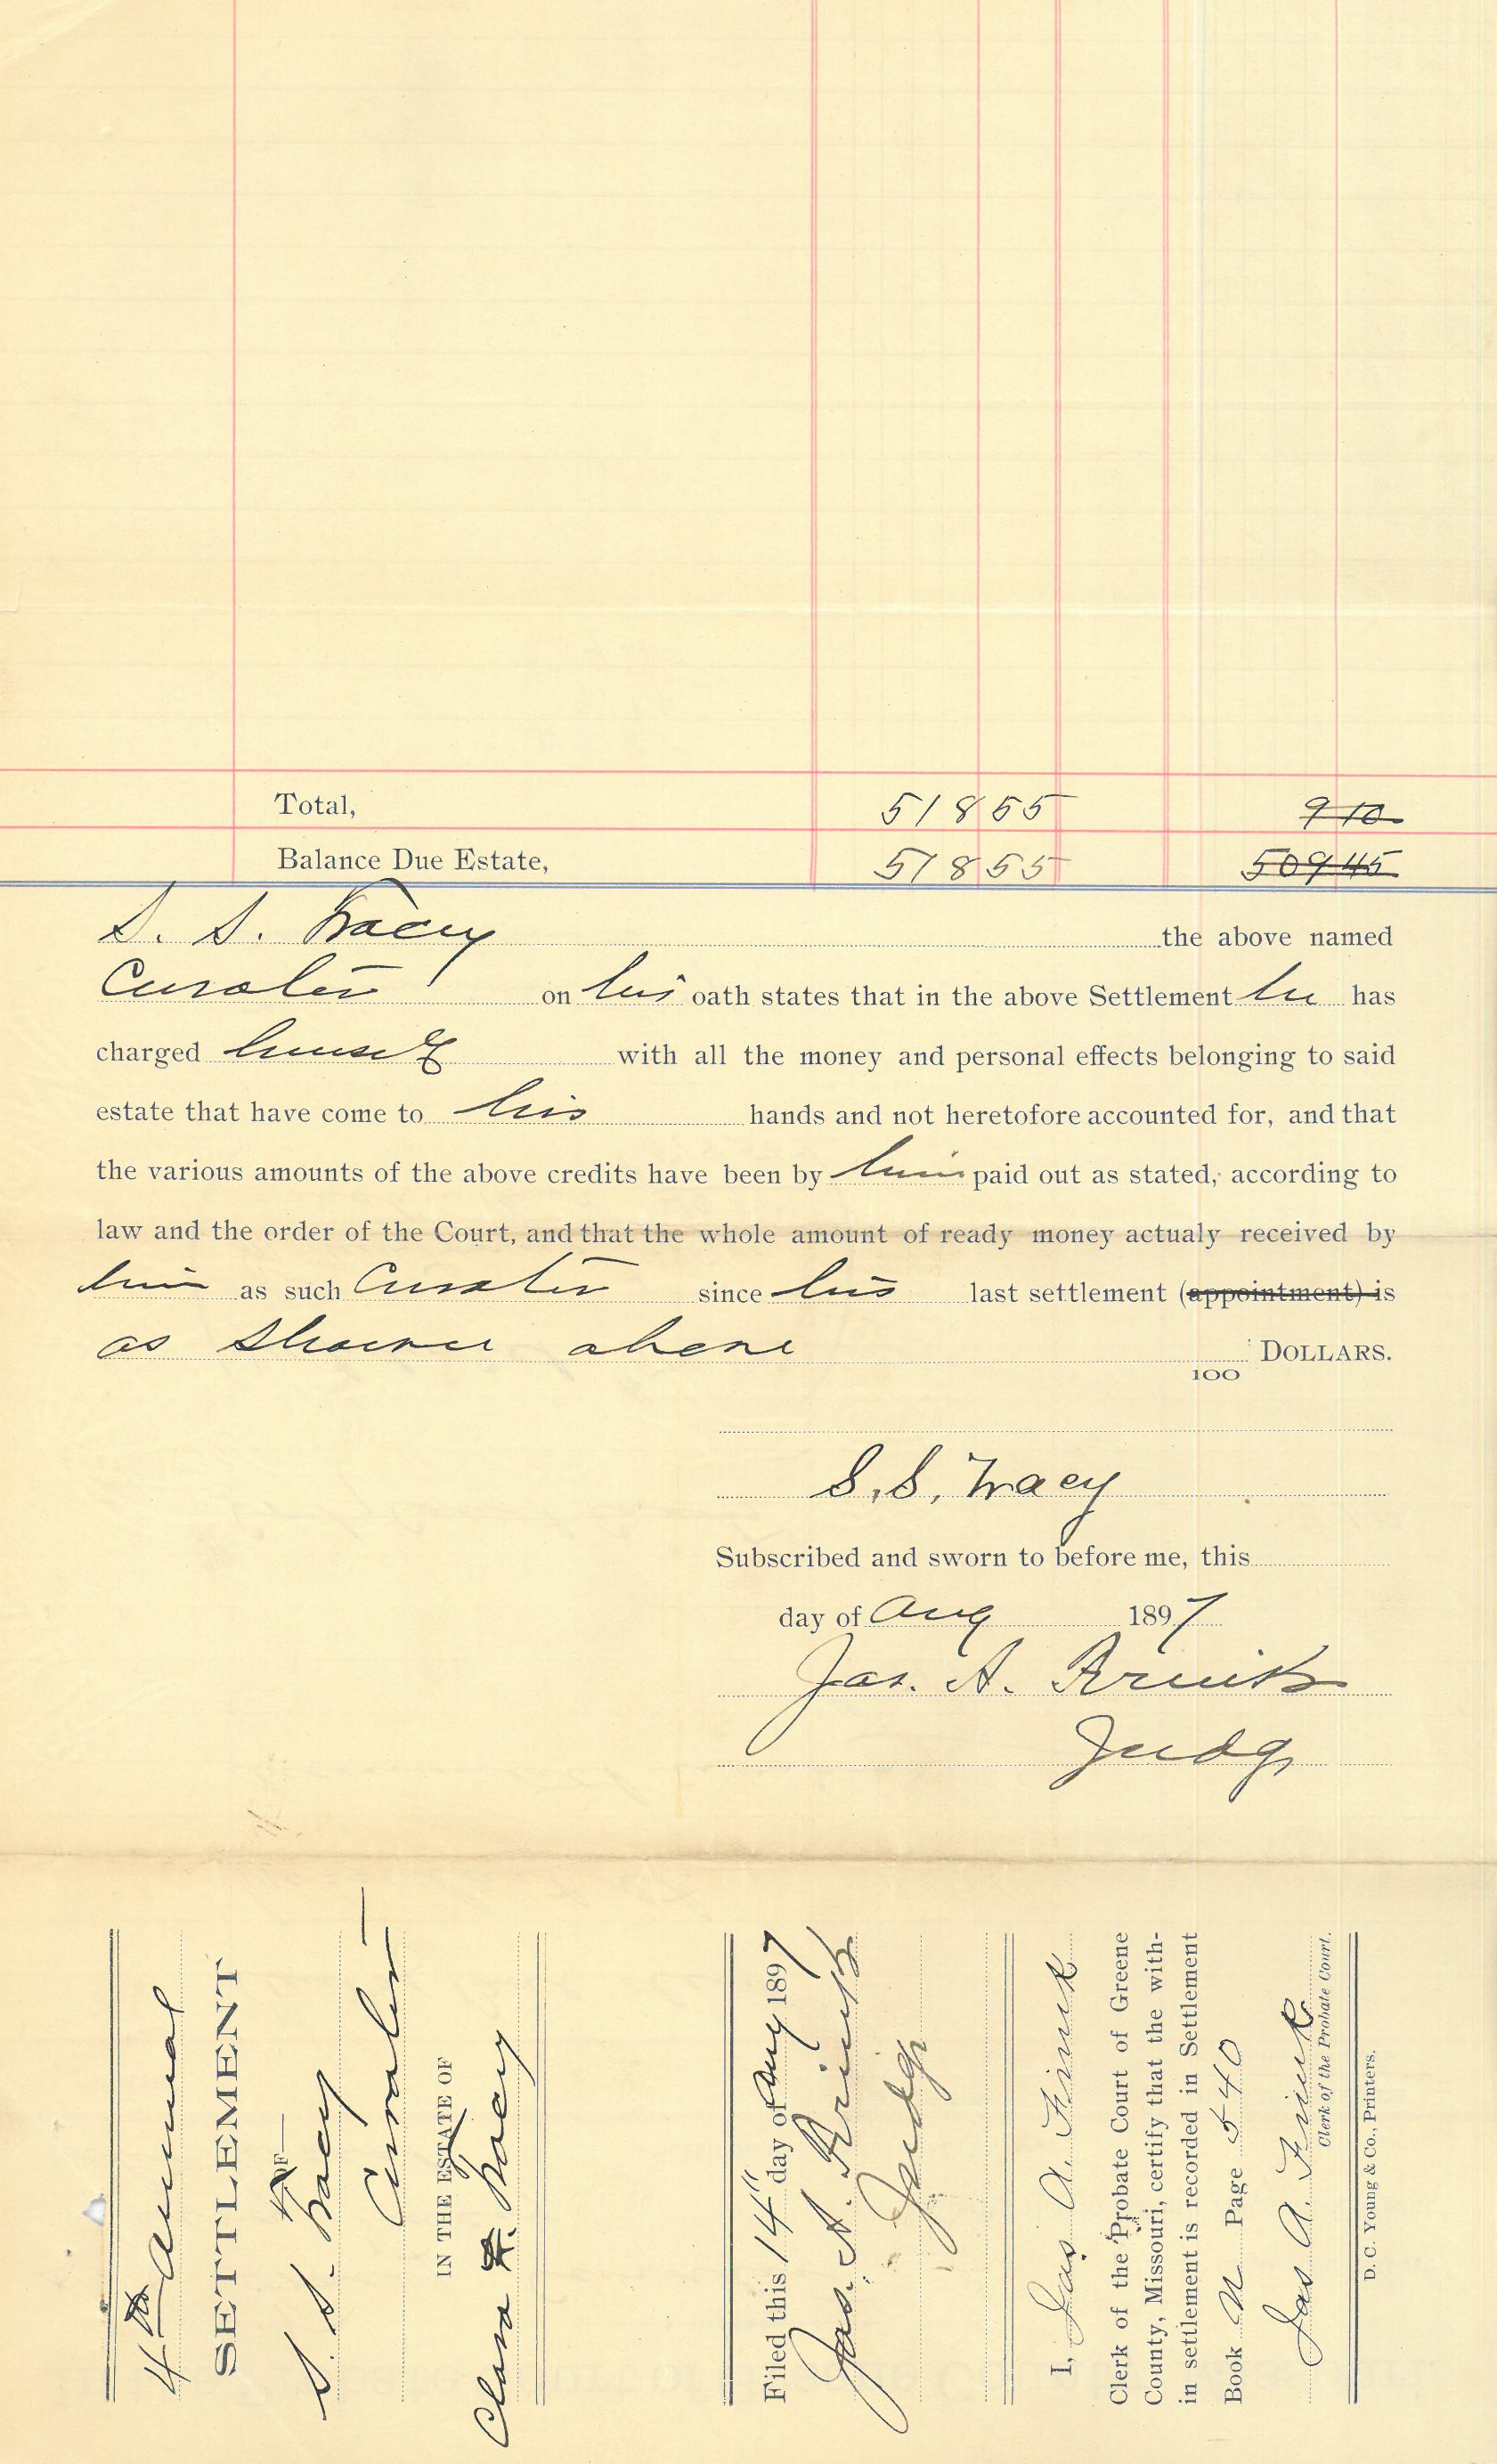 Total, 518 55 9 10
Balance Due Estate, 518 55 509 45
S. S. Tracy the above named
Curator on his oath states that in the above Settlement he has
charged himself with all the money and personal effects belonging to said
estate that have come to his hands and not heretofore accounted for, and that
the various amounts of the above credits have been by him paid out as stated, according to
law and the order of the Court, and that the whole amount of ready money actualy received by
him as such Curator since his last settlement (appointment) is
as shown above DOLLARS.
100
S. S. Tracy
Subscribed and sworn to before me, this
day of Aug 1897
Jas. A. Frink
Judge
4th Annual
SETTLEMENT
OF
S. S. Tracy
Curator
IN THE ESTATE OF
Clara Tracy
Filed this 14" day of Aug 1897
Jas. A. Frink
Judge
I, Jas A. Frink
Clerk of the Probate Court of Greene
County, Missouri, certify that the with-
in settlement is recorded in Settlement
Book N Page 540
Jas A. Frink
Clerk of the Probate Court.
D. C. Young & Co., Printers.